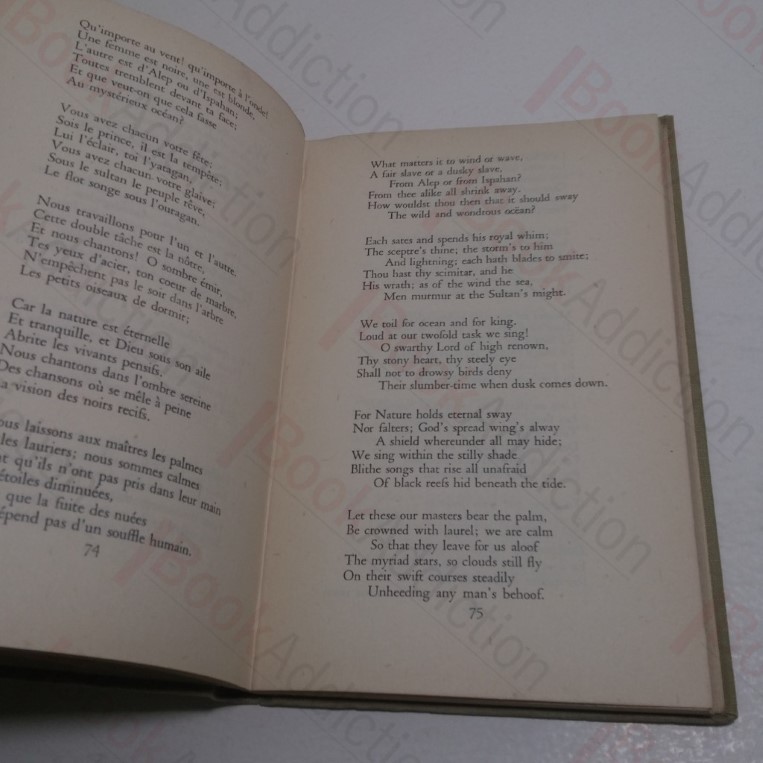 Qu'importe au vent! qu'importe à l'onde!
Une femme est noire, une est blonde,
L'autre est d'Alep ou d'Ispahan;
Toutes tremblent devant ta face;
Et que veut-on que cela fasse
Au mystérieux océan?
Vous avez chacun votre fête;
Sois le prince, il est la tempête;
Lui l'éclair, toi l'yatagan,
Vous avez chacun votre glaive;
Sous le sultan le peuple rêve,
Le flot songe sous l'ouragan.
Nous travaillons pour l'un et l'autre.
Cette double tâche est la nôtre,
Et nous chantons! O sombre émir,
Tes yeux d'acier, ton coeur de marbre,
N'empêchent pas le soir dans l'arbre
Les petits oiseaux de dormir;
Car la nature est éternelle
Et tranquille, et Dieu sous son aile
Abrite les vivants pensifs.
Nous chantons dans l'ombre sereine
Des chansons où se mêle à peine
a vision des noirs recifs.
ous laissons aux maîtres les palmes
les lauriers; nous sommes calmes
t qu'ils n'ont pas pris dans leur main
étoiles diminuées,
que la fuite des nuées
épend pas d'un souffle humain.
74
What matters it to wind or wave,
A fair slave or a dusky slave,
From Alep or from Ispahan?
From thee alike all shrink away.
How wouldst thou then that it should sway
The wild and wondrous ocëan?
Each sates and spends his royal whim;
The sceptre's thine; the storm's to him
And lightning; each hath blades to smite;
Thou hast thy scimitar, and he
His wrath; as of the wind the sea,
Men murmur at the Sultan's might.
We toil for ocean and for king.
Loud at our twofold task we sing!
O swarthy Lord of high renown,
Thy stony heart, thy steely eye
Shall not to drowsy birds deny
Their slumber-time when dusk comes down.
For Nature holds eternal sway
Nor falters; God's spread wing's alway
A shield whereunder all may hide;
We sing within the stilly shade
Blithe songs that rise all unafraid
Of black reefs hid beneath the tide.
Let these our masters bear the palm,
Be crowned with laurel; we are calm
So that they leave for us aloof
The myriad stars, so clouds still fly
On their swift courses steadily
Unheeding any man's behoof.
75